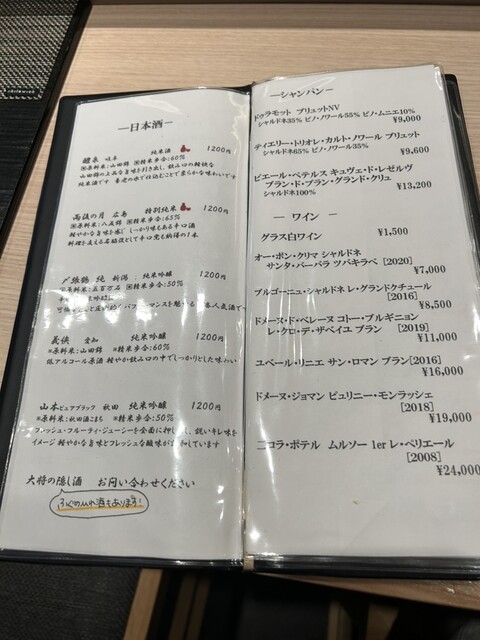 ―日本酒―
醴泉 岐阜 純米酒 1200円
※原料米:山田錦 ※精米歩合:60%
山田錦の上品な旨味を引き出し、飲み口の軽快な
純米酒です
雨後の月 広島 特別純米 1200円
※原料米:八反錦 ※精米歩合:65%
軽やかな旨味を感じ しっかり味もある辛口酒
料理を支える名脇役として辛口党も納得の1本
〆張鶴 純 新潟 純米吟醸
※原料米:五百万石 ※精米歩合:50%
義侠 愛知 純米吟醸 1200円
※原料米:山田錦 ※精米歩合:60%
低アルコール原酒 軽やか飲み口の中でしっかりとした味わい
山本ピュアブラック 秋田 純米吟醸 1200円
※原料米:秋田酒こまち ※精米歩合:50%
フレッシュ・フルーティ・ジューシーを全面に押し出し、鋭いキレ味を
イメージ 軽やかな旨味とフレッシュな酸味が
大将の隠し酒 お問い合わせください
ふぐのひれ酒もあります!
―シャンパン―
ドゥラモット ブリュットNV
シャルドネ35% ピノ・ノワール55% ピノ・ムニエ10%
¥9,000
ティエリー・トリオレ・カルト・ノワール ブリュット
シャルドネ65% ピノ・ノワール35%
¥9,600
ピエール・ペテルス キュヴェ・ド・レゼルヴ
ブラン・ド・ブラン・グランド・クリュ
シャルドネ100%
¥13,200
― ワイン ―
グラス白ワイン ¥1,500
オー・ボン・クリマ シャルドネ
サンタ・バーバラ ツバキラベ [2020]
¥7,000
ブルゴーニュ・シャルドネ レ・グランドクチュール
[2016]
¥8,500
ドメーヌ・ド・ベレーヌ コトー・ブルギニョン
レ・クロ・デ・ザペイユ ブラン [2019]
¥11,000
ユベール・リニエ サン・ロマン ブラン[2016]
¥16,000
ドメーヌ・ジョマン ピュリニー・モンラッシェ
[2018]
¥19,000
ニコラ・ポテル ムルソー 1er レ・ペリエール
[2008]
¥24,000